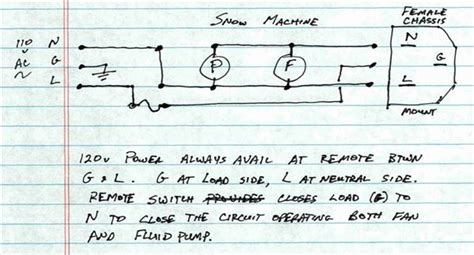 SNOW MACHINE
FEMALE
CHASSIS
110 N
AC G
L
P
F
N
G
L
MOUNT
120V POWER ALWAYS AVAIL AT REMOTE BTWN
G & L. G AT LOAD SIDE, L AT NEUTRAL SIDE.
REMOTE SWITCH PROVIDES CLOSES LOAD (G) TO
N TO CLOSE THE CIRCUIT OPERATING BOTH FAN
AND FLUID PUMP.